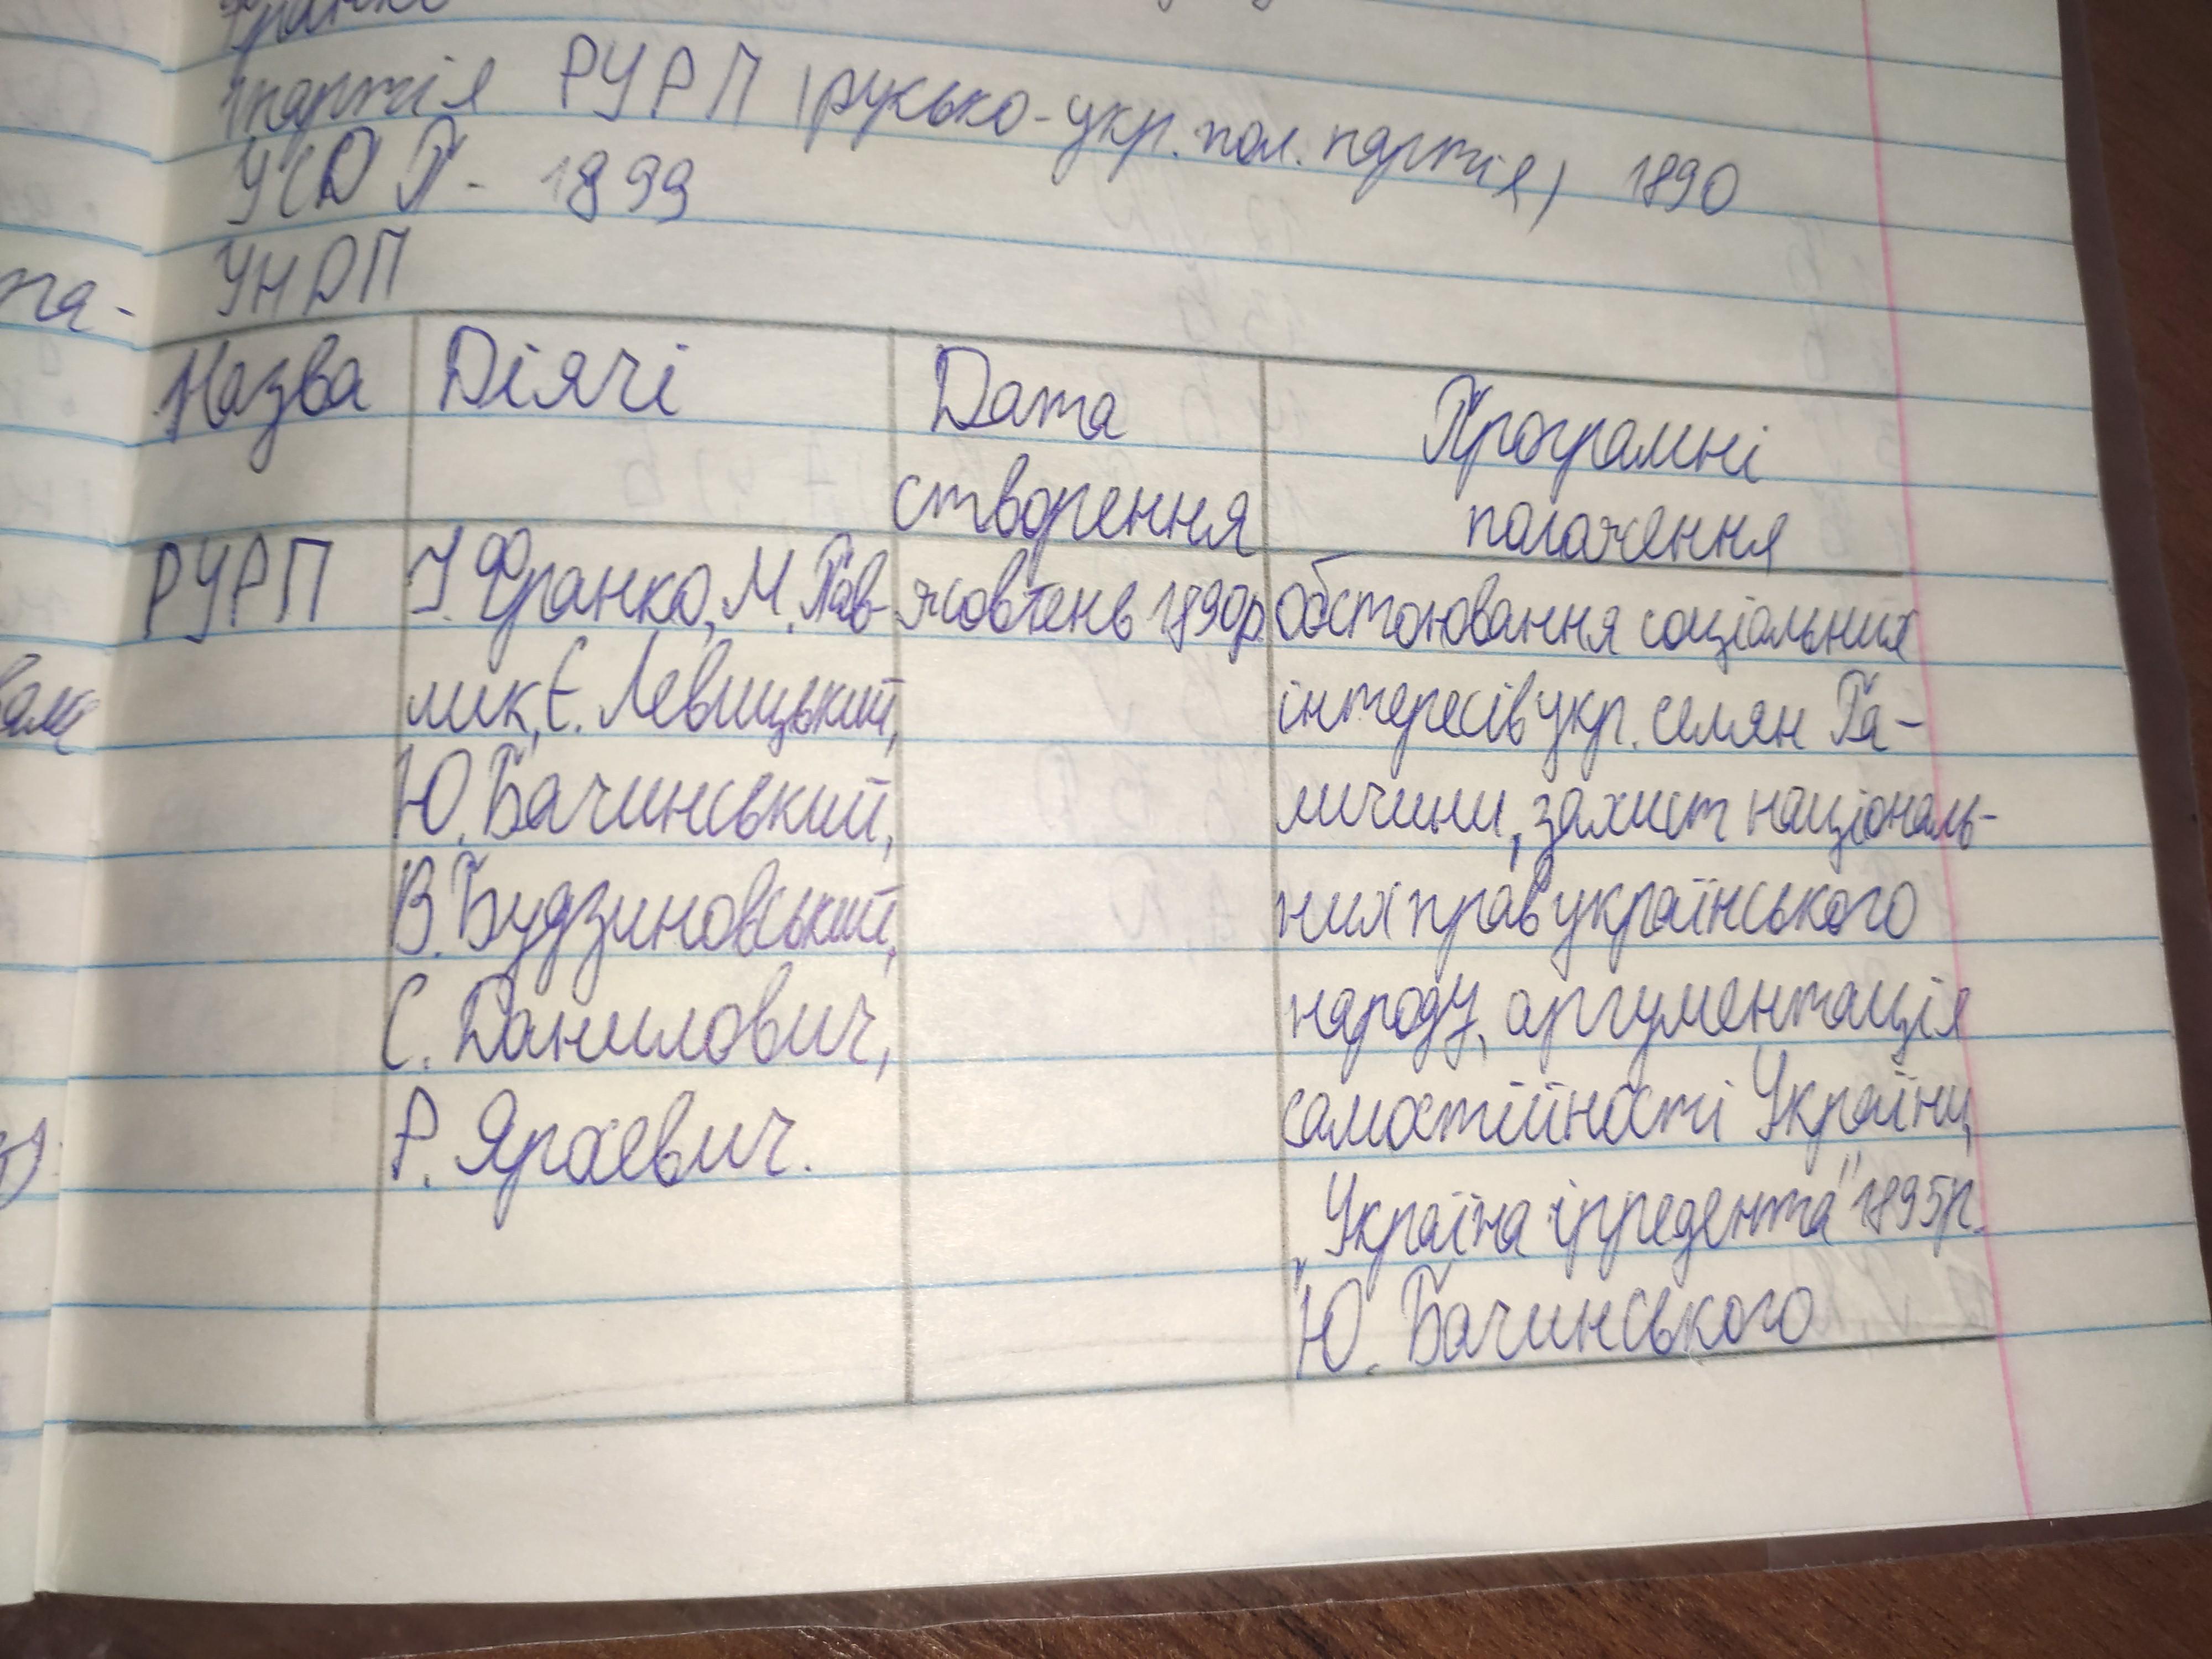 Франко
1 партія РУРП (русько-укр. пол. партія) 1890
УСДП - 1899
УНДП
Назва Діячі Дата створення Програмні положення
РУРП
І. Франко, М. Пав-
лик, Є. Левицький,
Ю. Бачинський,
В. Будзиновський,
С. Данилович,
Р. Яросевич.
жовтень 1890р.
обстоювання соціальних
інтересів укр. селян Га-
личини, захист національ-
них прав українського
народу, аргументація
самостійності України,
"Україна ірредента" 1895р.
Ю. Бачинського